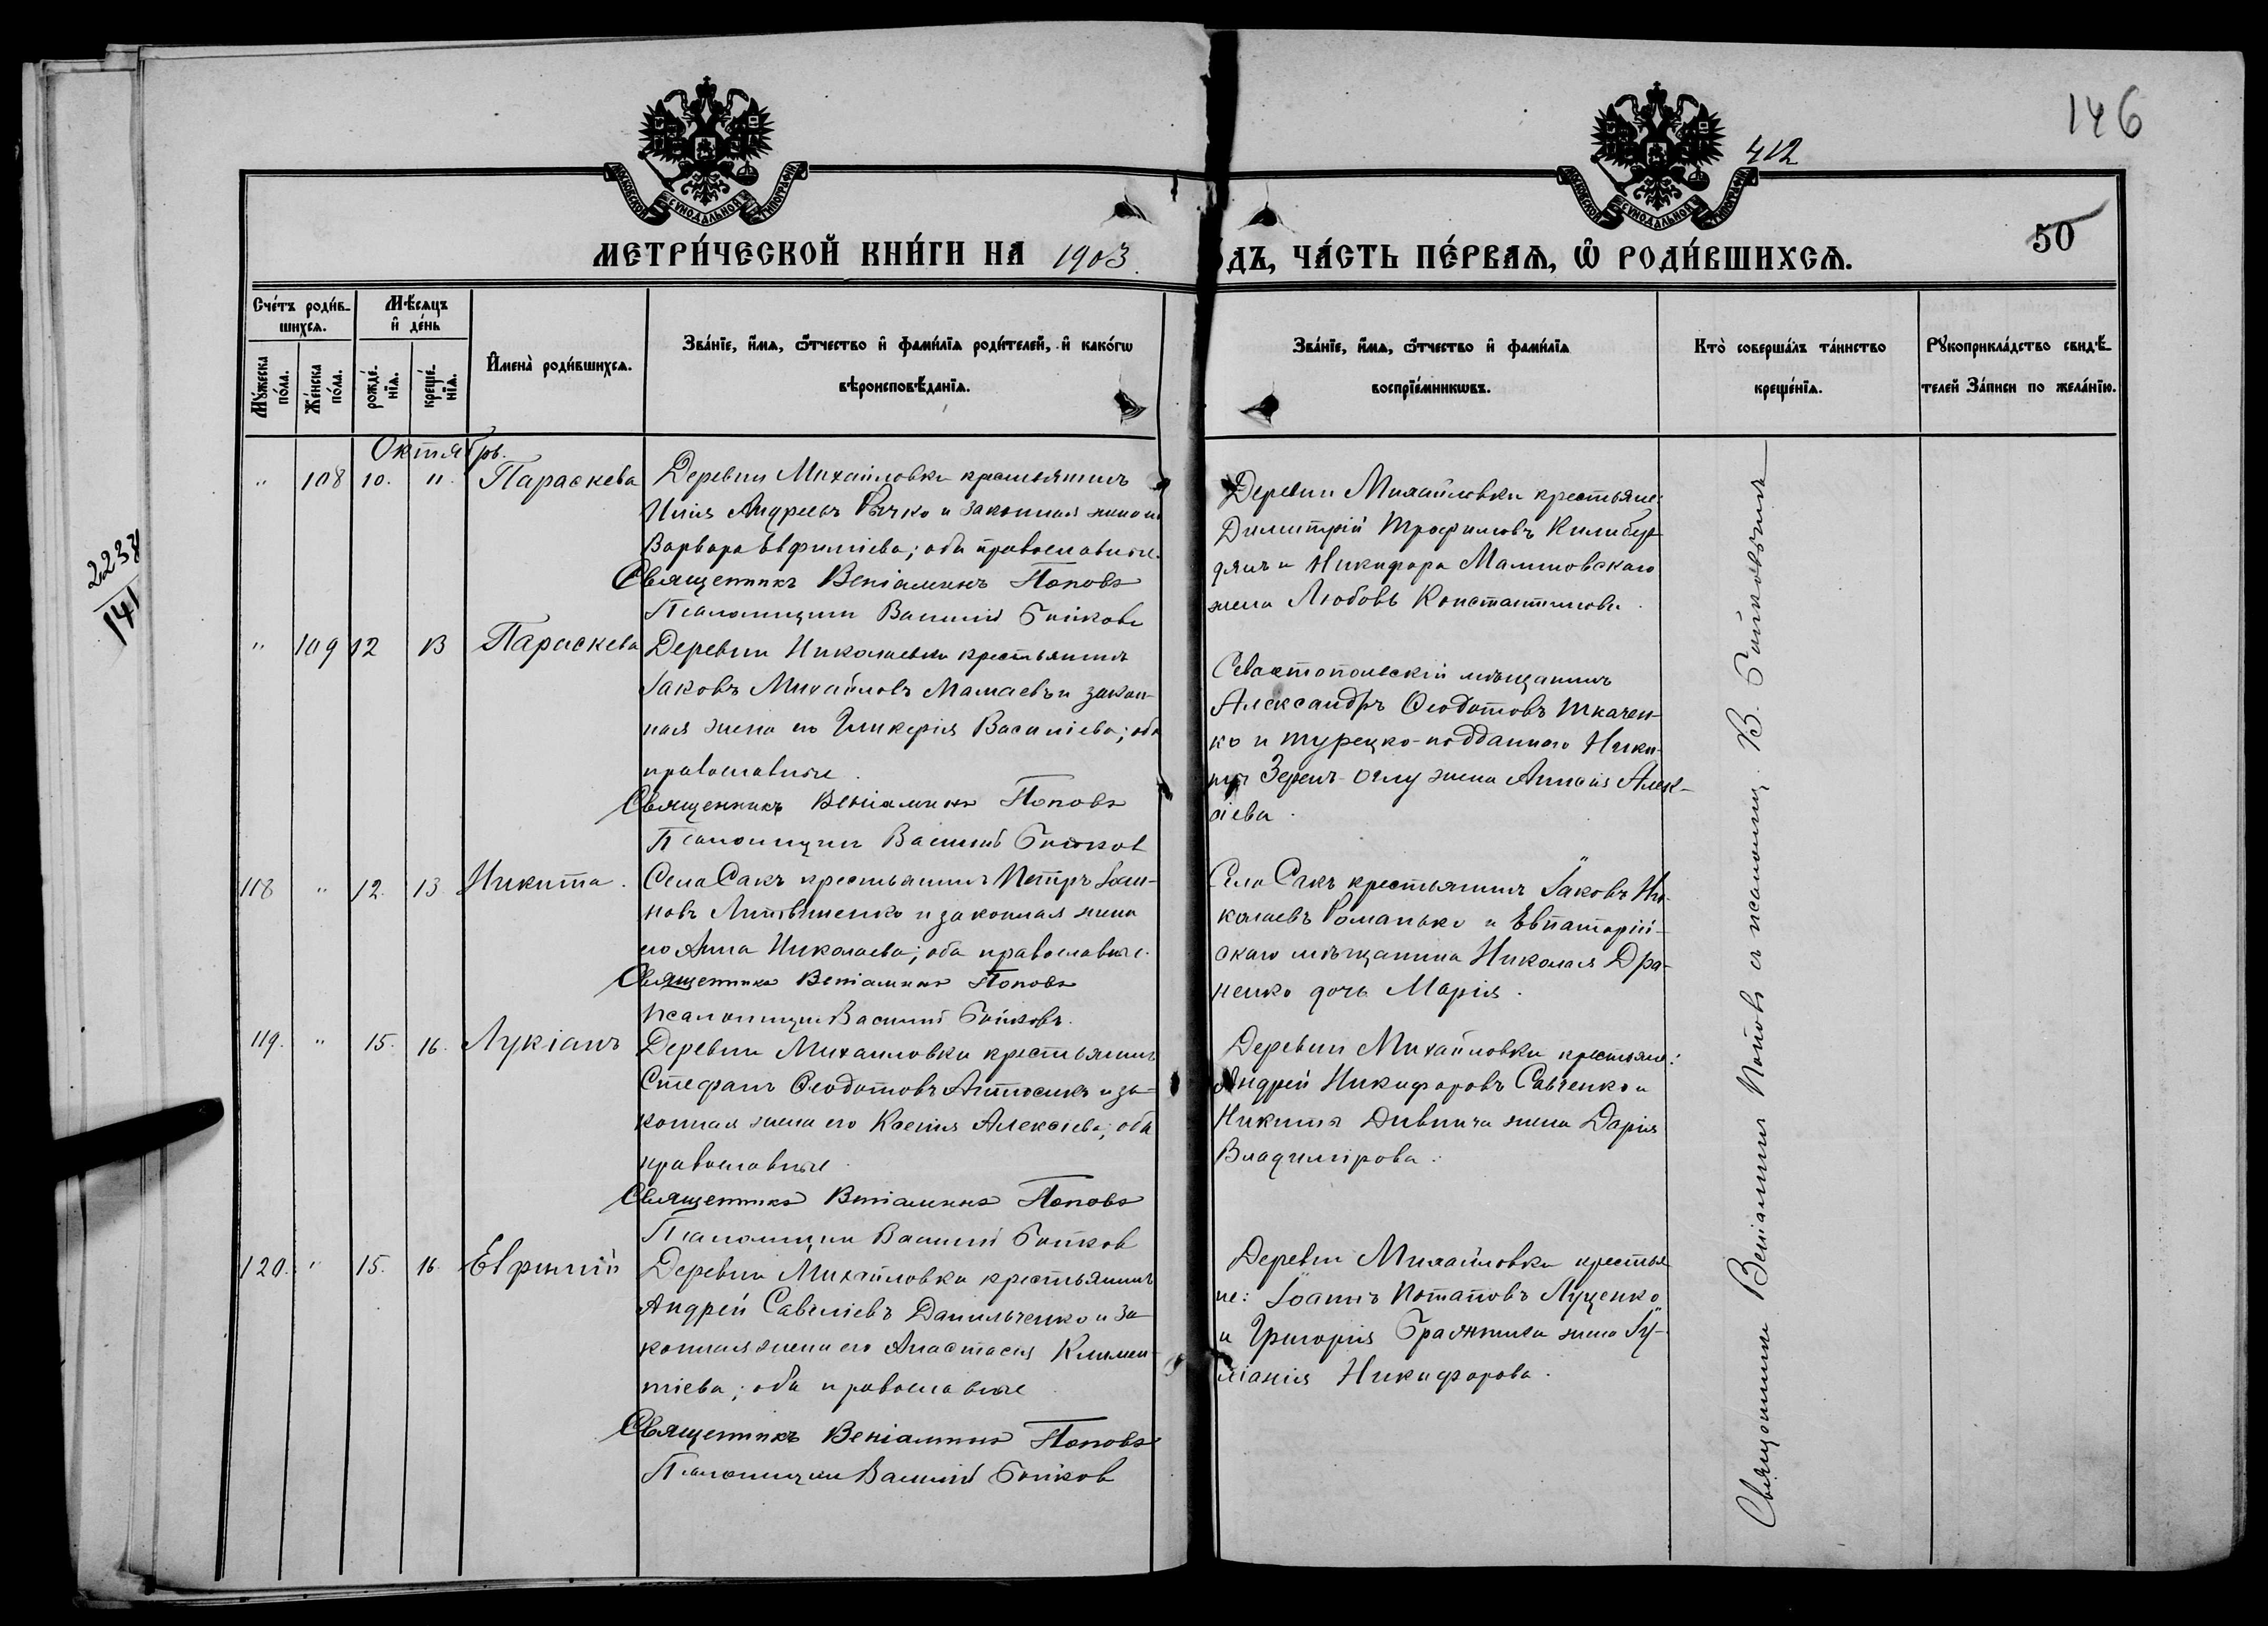 146
412
МОСКОВСКОЙ СѴНОДАЛЬНОЙ ТИПОГРАФІИ
МОСКОВСКОЙ СѴНОДАЛЬНОЙ ТИПОГРАФІИ
МЕТРИ́ЧЕСКОЙ КНИ́ГИ НА 1903
ДЪ, ЧА́СТЬ ПЕ́РВАѦ, Ѡ РОДИ́ВШИХСѦ.
50
Сче́тъ роди́в-
шихсѧ.
Мѣ́сѧцъ
и҆ де́нь
Мꙋ́жеска
по́ла.
Же́нска
по́ла.
рожде́-
нїѧ.
креще́-
нїѧ.
И҆мена̀ роди́вшихсѧ.
Зва́нїе, и҆́мѧ, ѻ҆́тчество и҆ фами́лїѧ роди́телей, и҆ како́гѡ
вѣроисповѣ́данїѧ.
Зва́нїе, и҆́мѧ, ѻ҆́тчество и҆ фами́лїѧ
воспрїе́мникѡвъ.
Кто̀ соверша́лъ та́инство
креще́нїѧ.
Рꙋкоприкла́дство свидѣ́-
телей За́писи по жела́нїю.
Октябрь.
" 108 10. 11. Параскева
Деревни Михайловки крестьянинъ
Илія Андреевъ Рычко и законная жена его
Варвара Евфиміева; оба православные.
Священникъ Веніаминъ Поповъ
Псаломщикъ Василій Бойковъ
Деревни Михайловки крестьяне:
Димитрій Трофимовъ
и Никифора Малиновскаго
жена Любовь Константинова.
" 109 12 13 Параскева
Деревни Николаевки крестьянинъ
Іаковъ Михайловъ Мамаевъ и закон-
ная жена его Гликерія Василіева; оба
православные.
Священникъ Веніаминъ Поповъ
Псаломщикъ Василій Бойков
Севастопольскій мѣщанинъ
Александръ Ѳеодотовъ Ткачен-
ко и турецко-подданного Ники-
ты Зерен-оглу жена Алек-
сіева.
118 " 12. 13. Никита.
Села Сакъ крестьянинъ Петръ Іоан-
новъ Литвиненко и законная жена
его Анна Николаева; оба православные.
Священникъ Веніаминъ Поповъ
Псаломщикъ Василій Бойковъ.
Села Сакъ крестьянинъ Іаковъ Ни-
колаевъ Романько и Евпаторій-
скаго мѣщанина Николая Дра-
ненко дочь Марія.
119. " 15. 16. Лукіанъ
Деревни Михайловки крестьянинъ
Стефанъ Ѳеодотовъ Антосикъ и за-
конная жена его Ксенія Алексіева; оба
православные.
Священникъ Веніаминъ Поповъ
Псаломщикъ Василий Бойков
Деревни Михайловки крестьяне:
Андрей Никифоровъ Савченко и
Никиты жена Дарія
Владимірова.
120. " 15. 16 Евфимій
Деревни Михайловки крестьянинъ
Андрей Савеліевъ Данильченко и за-
конная жена его Анастасія Климен-
тіева; оба православные.
Священникъ Веніаминъ Поповъ
Псаломщикъ Василий Бойков
Деревни Михайловки крестья-
не: Іоаннъ Потаповъ Луценко
и Григорія жена Іу-
ліанія Никифорова.
Священникъ Веніаминъ Поповъ съ псаломщ. В. Бойковымъ
2238
141